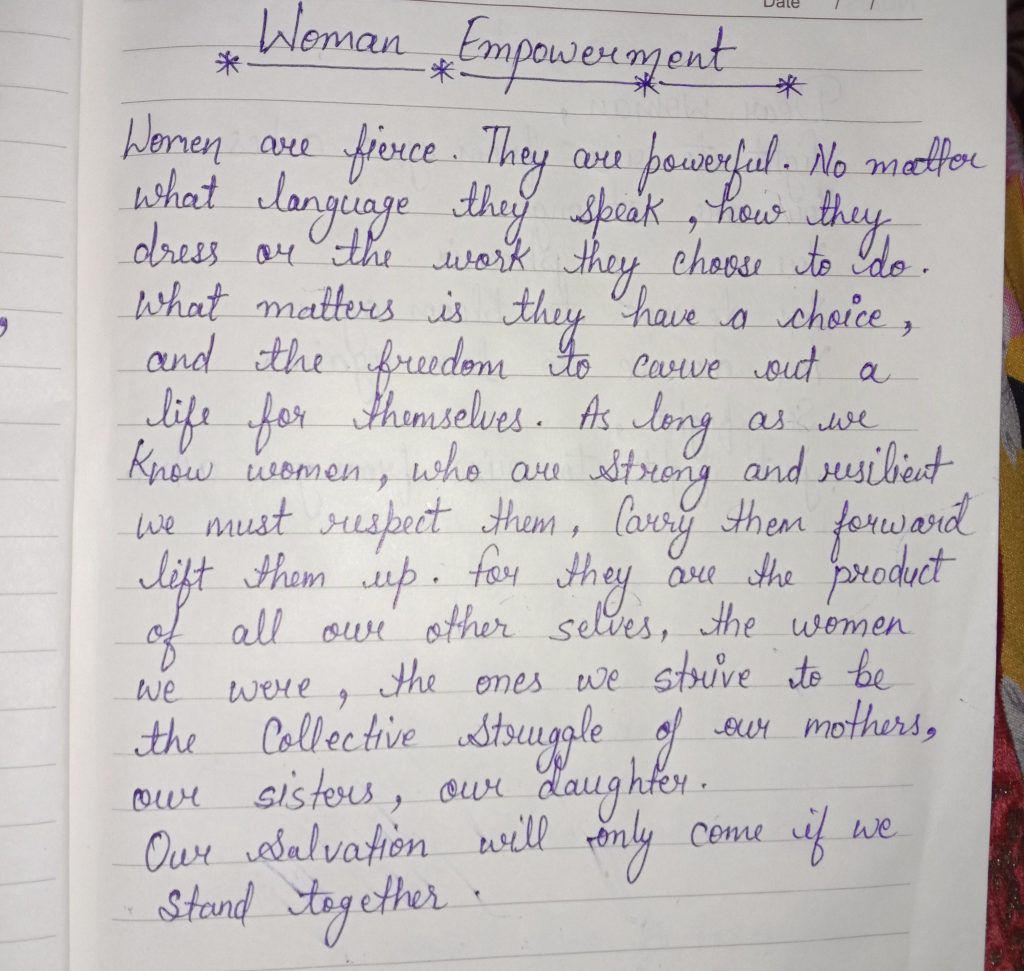 Date / /
Woman Empowerment
Women are fierce. They are powerful. No matter
what language they speak, how they
dress or the work they choose to do.
What matters is they have a choice,
and the freedom to carve out a
life for themselves. As long as we
Know women, who are strong and resilient
we must respect them, Carry them forward
lift them up. for they are the product
of all our other selves, the women
we were, the ones we strive to be
the Collective struggle of our mothers,
our sisters, our daughter.
Our salvation will only come if we
Stand together.